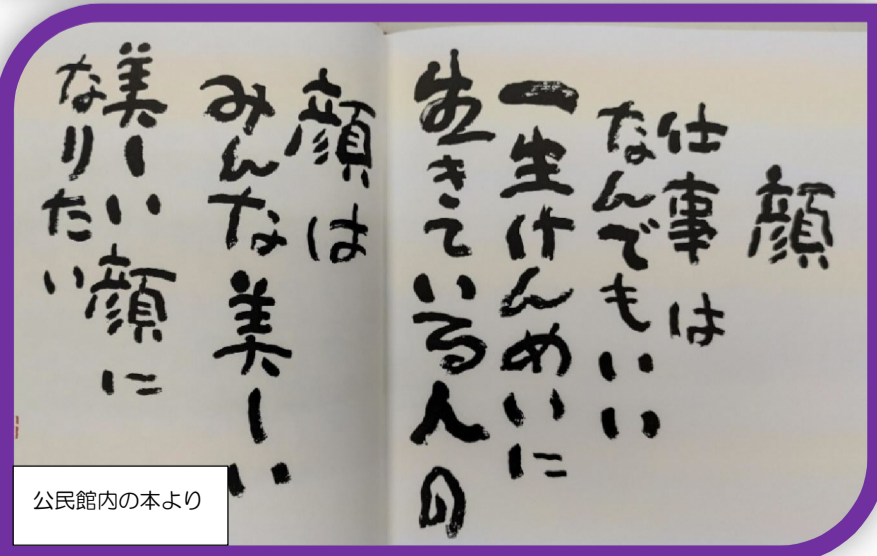 顔
仕事は
なんでもいい
一生けんめいに
生きている人の
顔は
みんな美しい
美しい顔に
なりたい
公民館内の本より